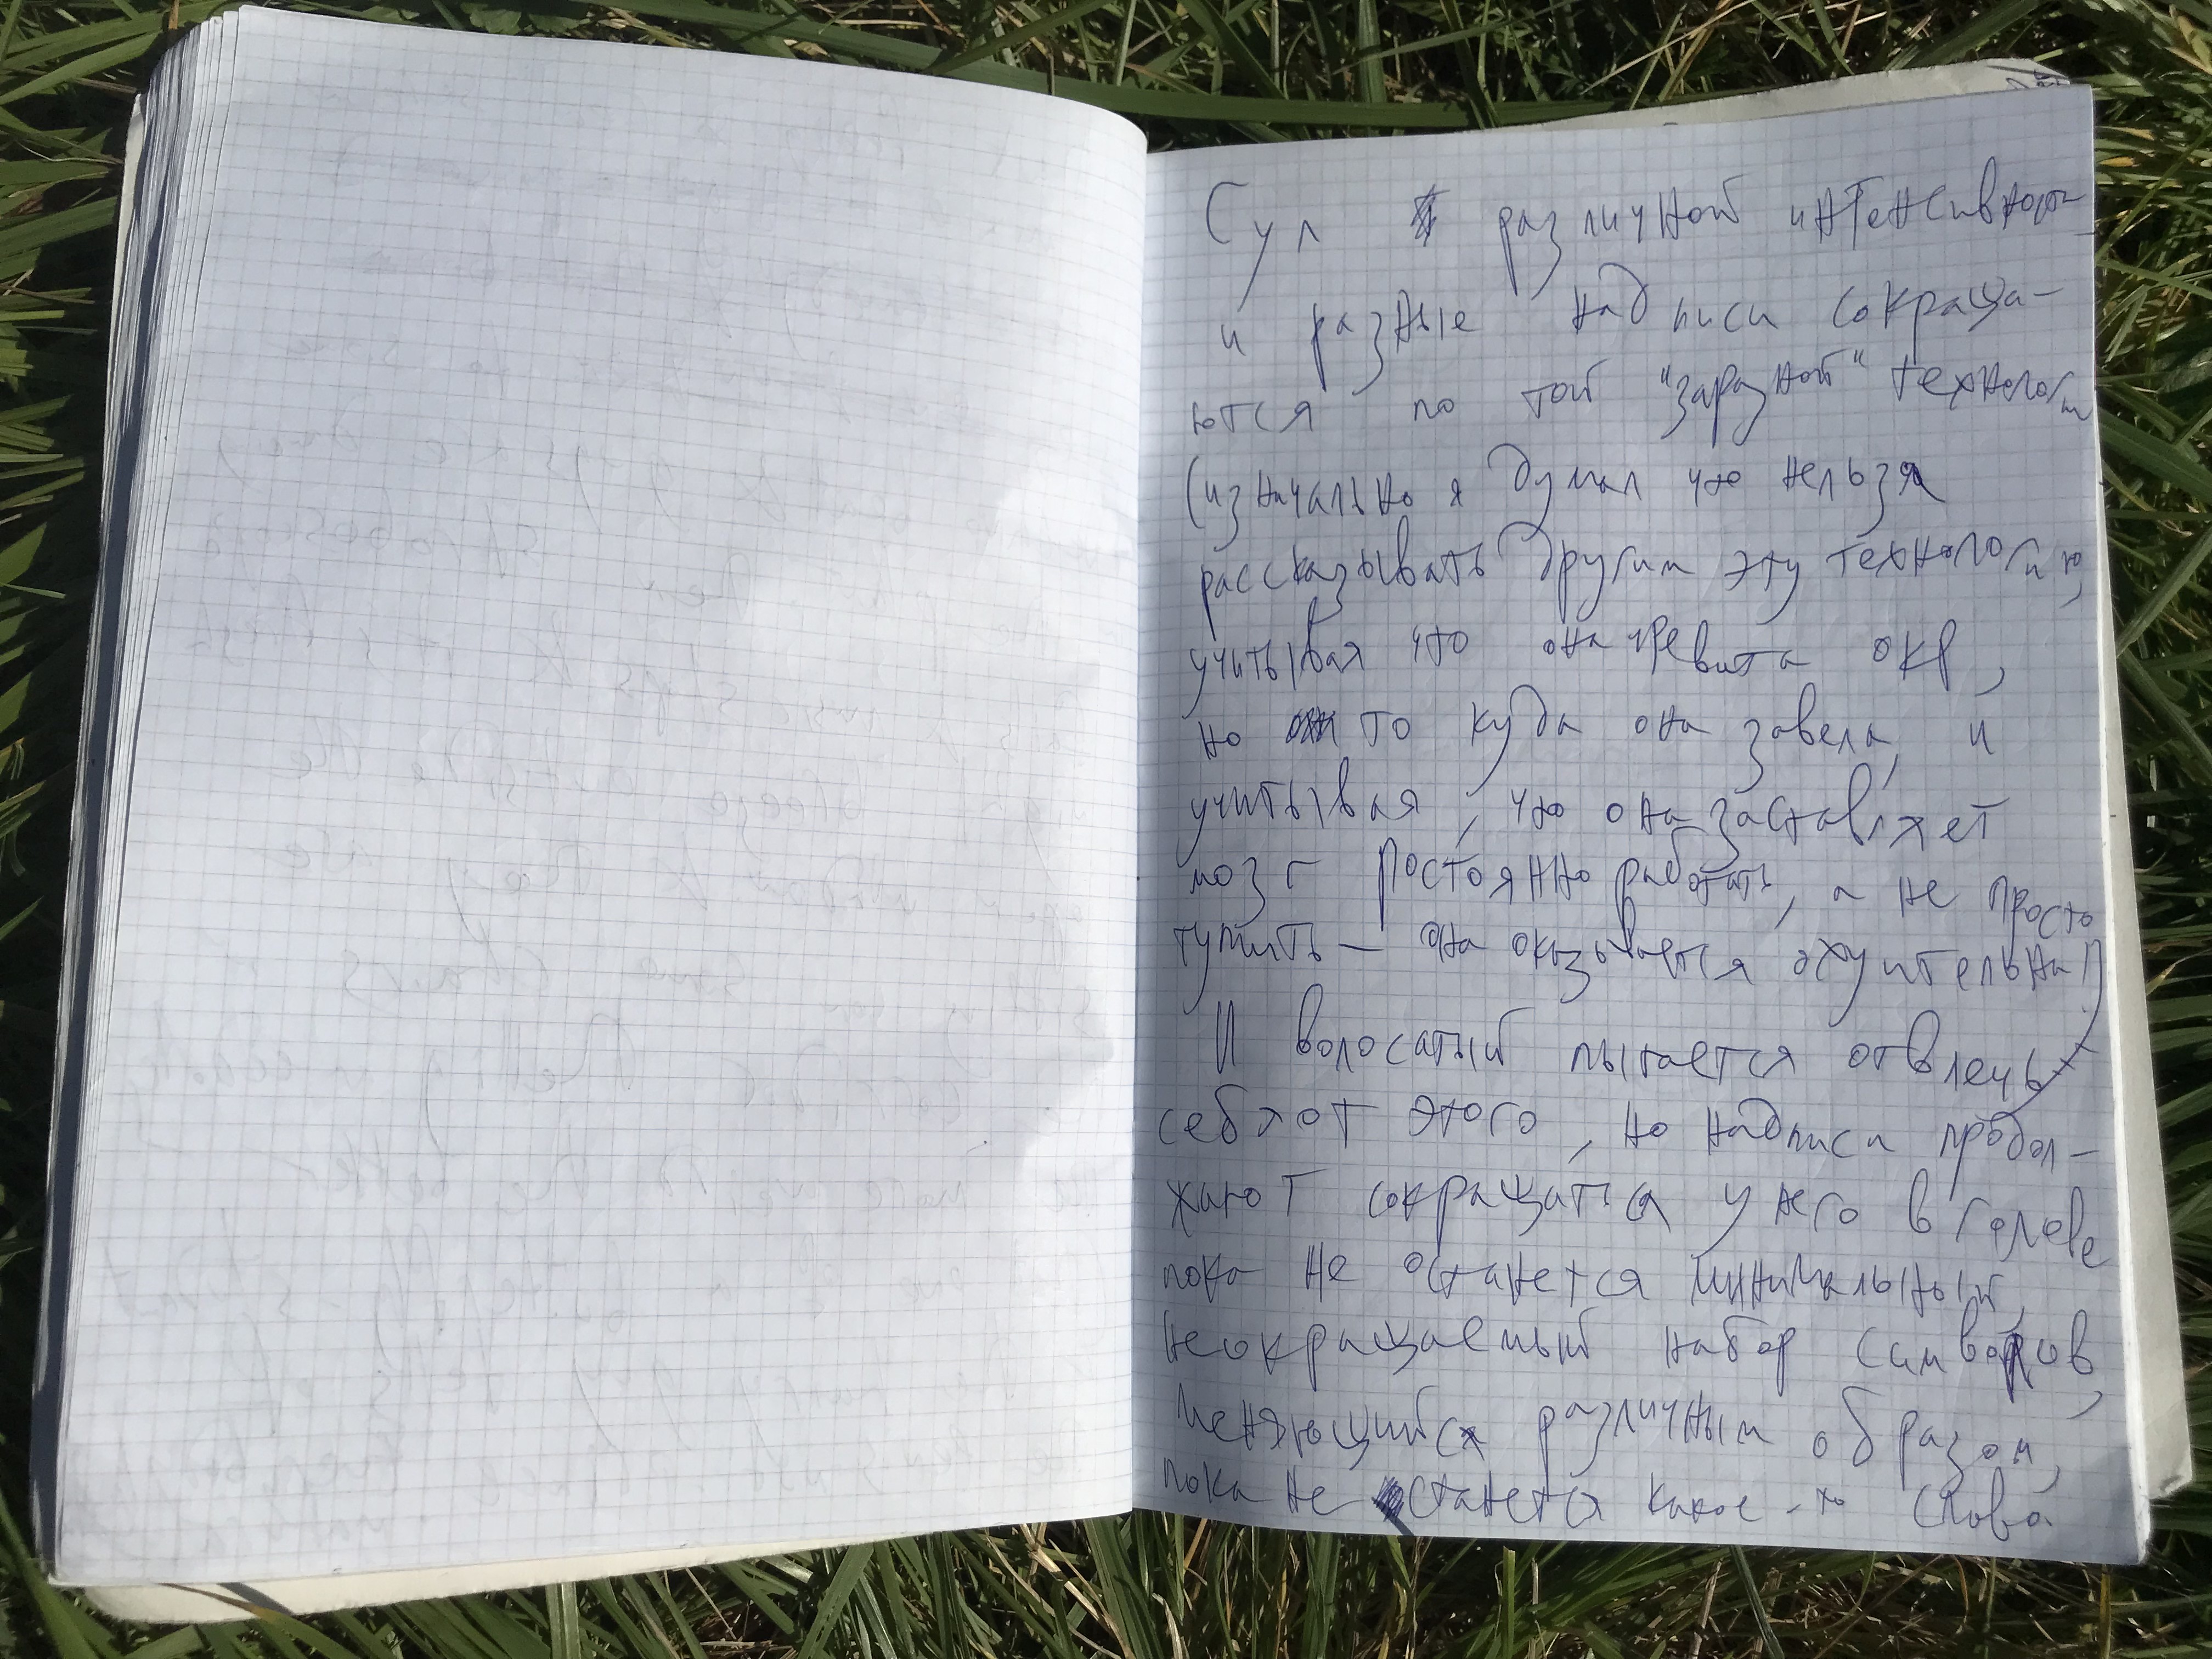 Сул различной интенсивнос-
и разные надписи сокраща-
ются по той "заразной" технологи
(изначально я думал что нельзя
рассказывать другим эту технологию,
учитывая что она
но то куда она завела и
учитывая, что она заставляет
мозг постоянно работать, а не просто
тупить — она оказывается охуительна)
|| волосатый пытается отвлечь
себя от этого, но надписи продол-
жают сокращаться у него в голове
пока не останется минимальный
несокращаемый набор символов
меняющийся различным образом,
пока не останется какое-то слово,